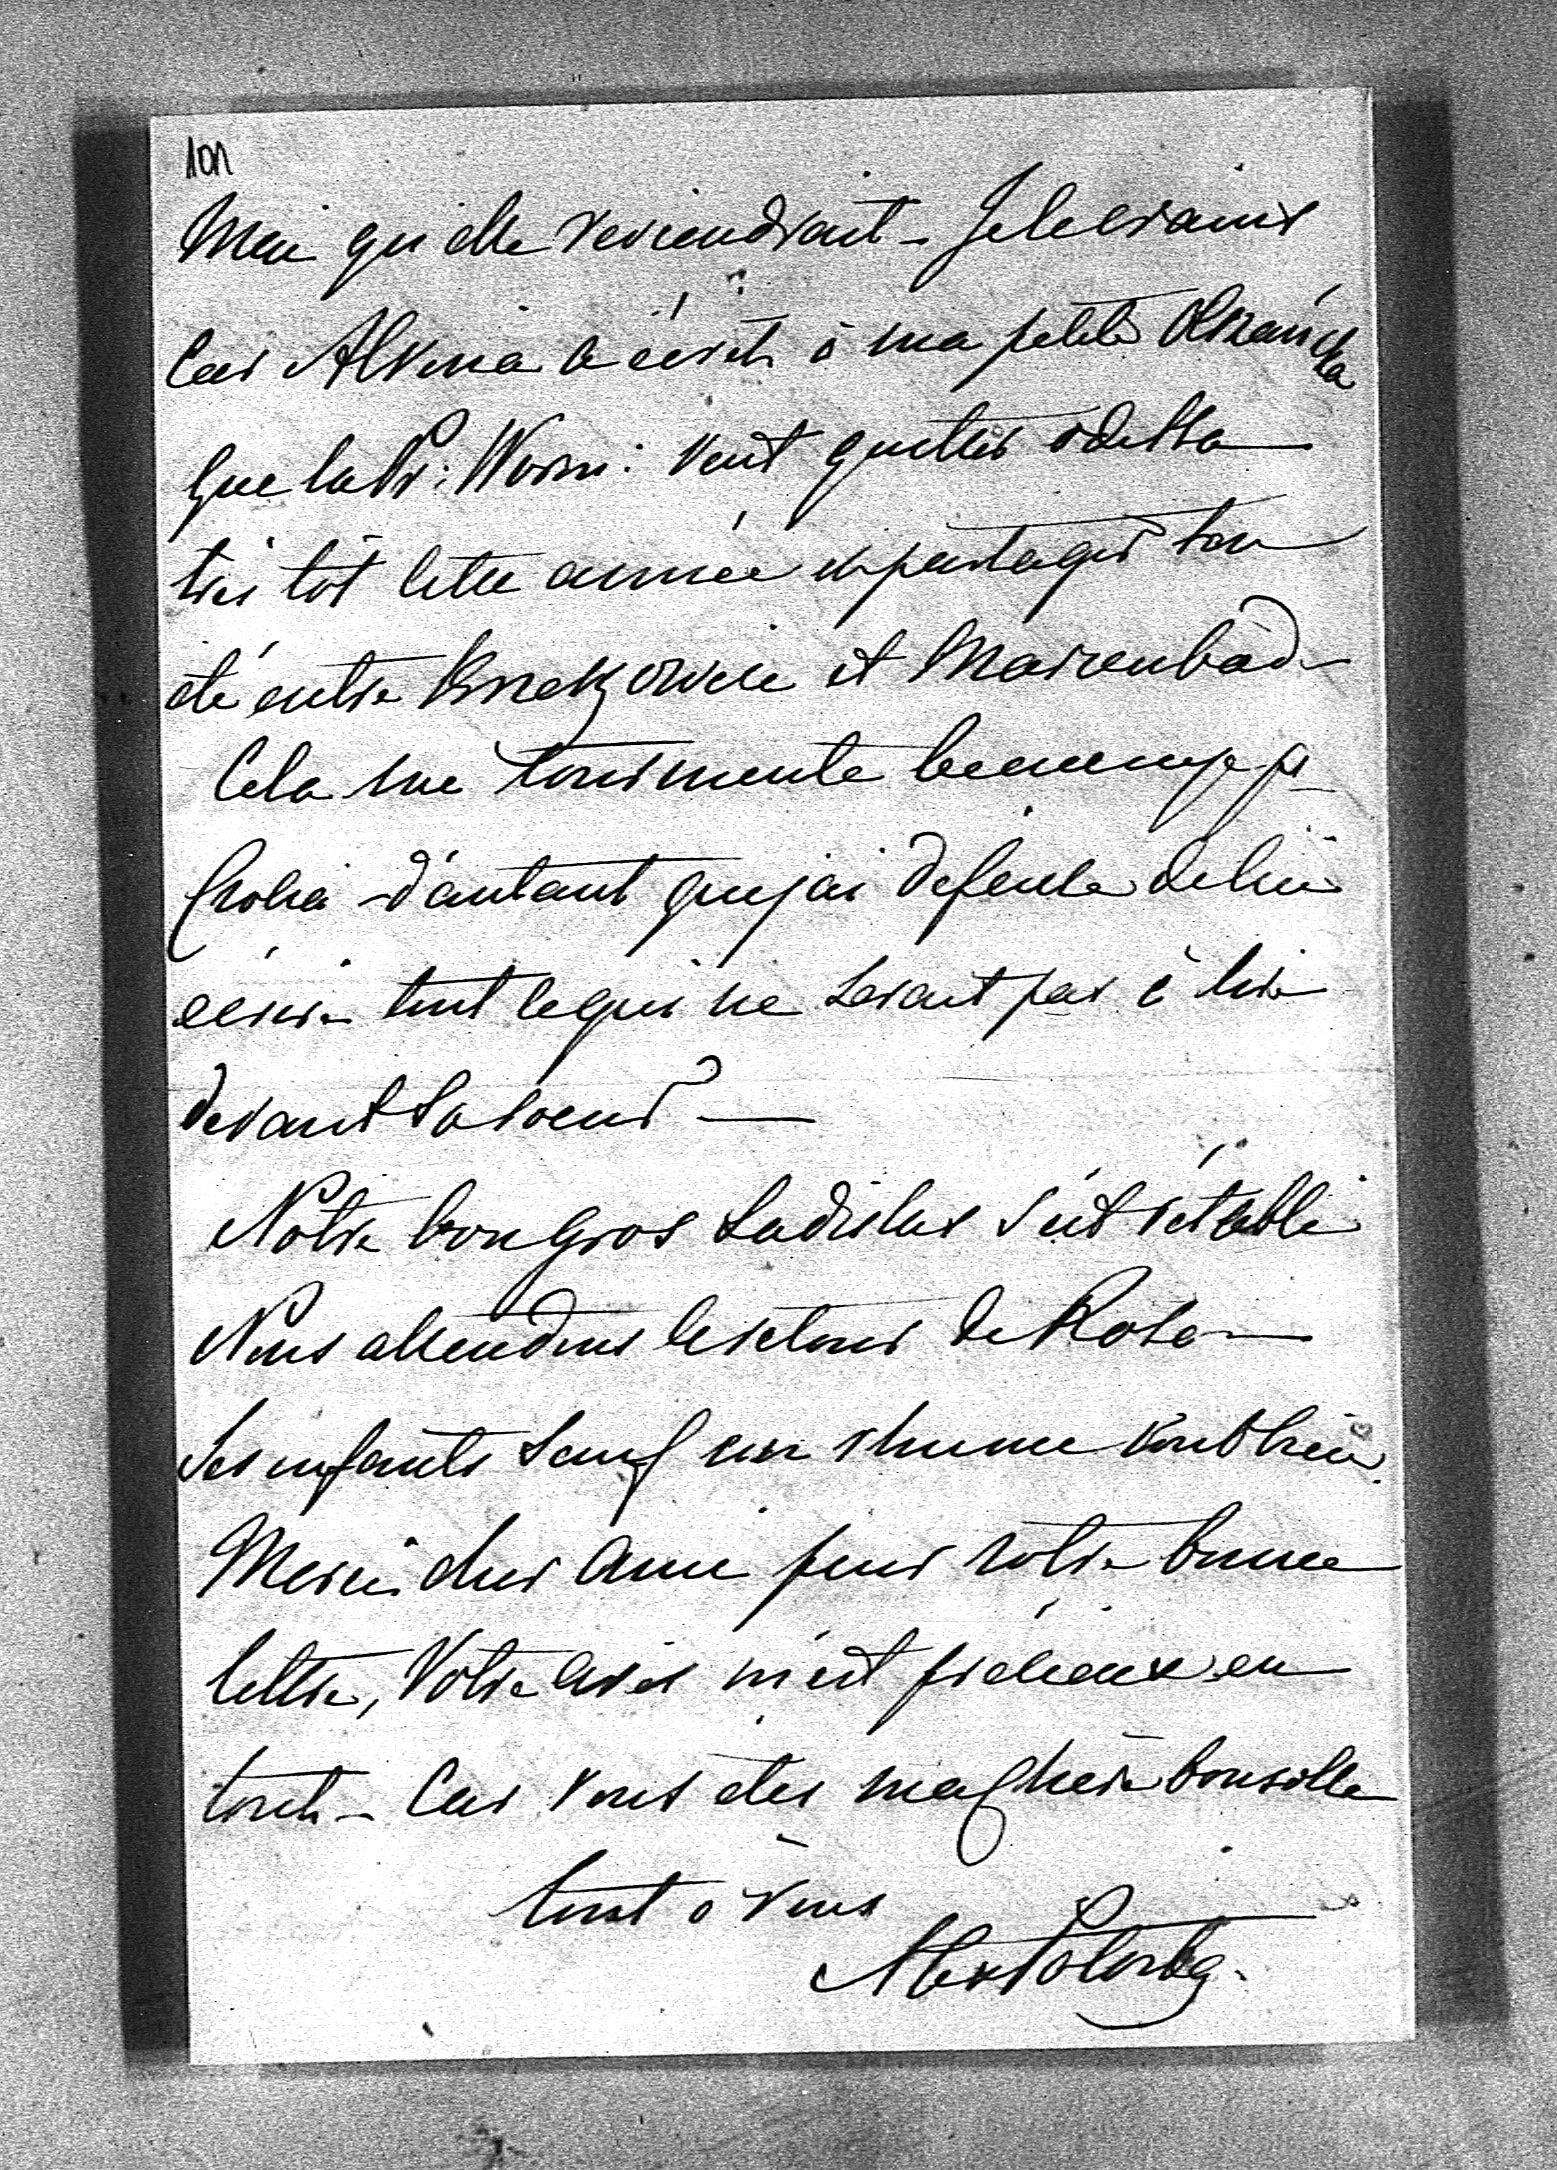 101
Mai qu'elle reviendrait – Je le crains
Car Alvina a écrit à ma petite
que la Pr: Woron: veut quitter Odessa
très tôt cette année et partager son
été entre et Marienbad –
Cela me tourmente beaucoup p.
Zosia – d'autant que j'ai défense de lui
écrire tout ce qui ne serait pas à lire
devant sa soeur —
Notre bon gros Ladislas s'est rétabli
Nous attendons le retour de Rose —
Ses enfants sauf un rhume vont bien.
Merci cher ami pour votre bonne
lettre, Votre avis m'est précieux en
tout – Car vous êtes ma chère boussole
tout à vous
Alex Potocka.